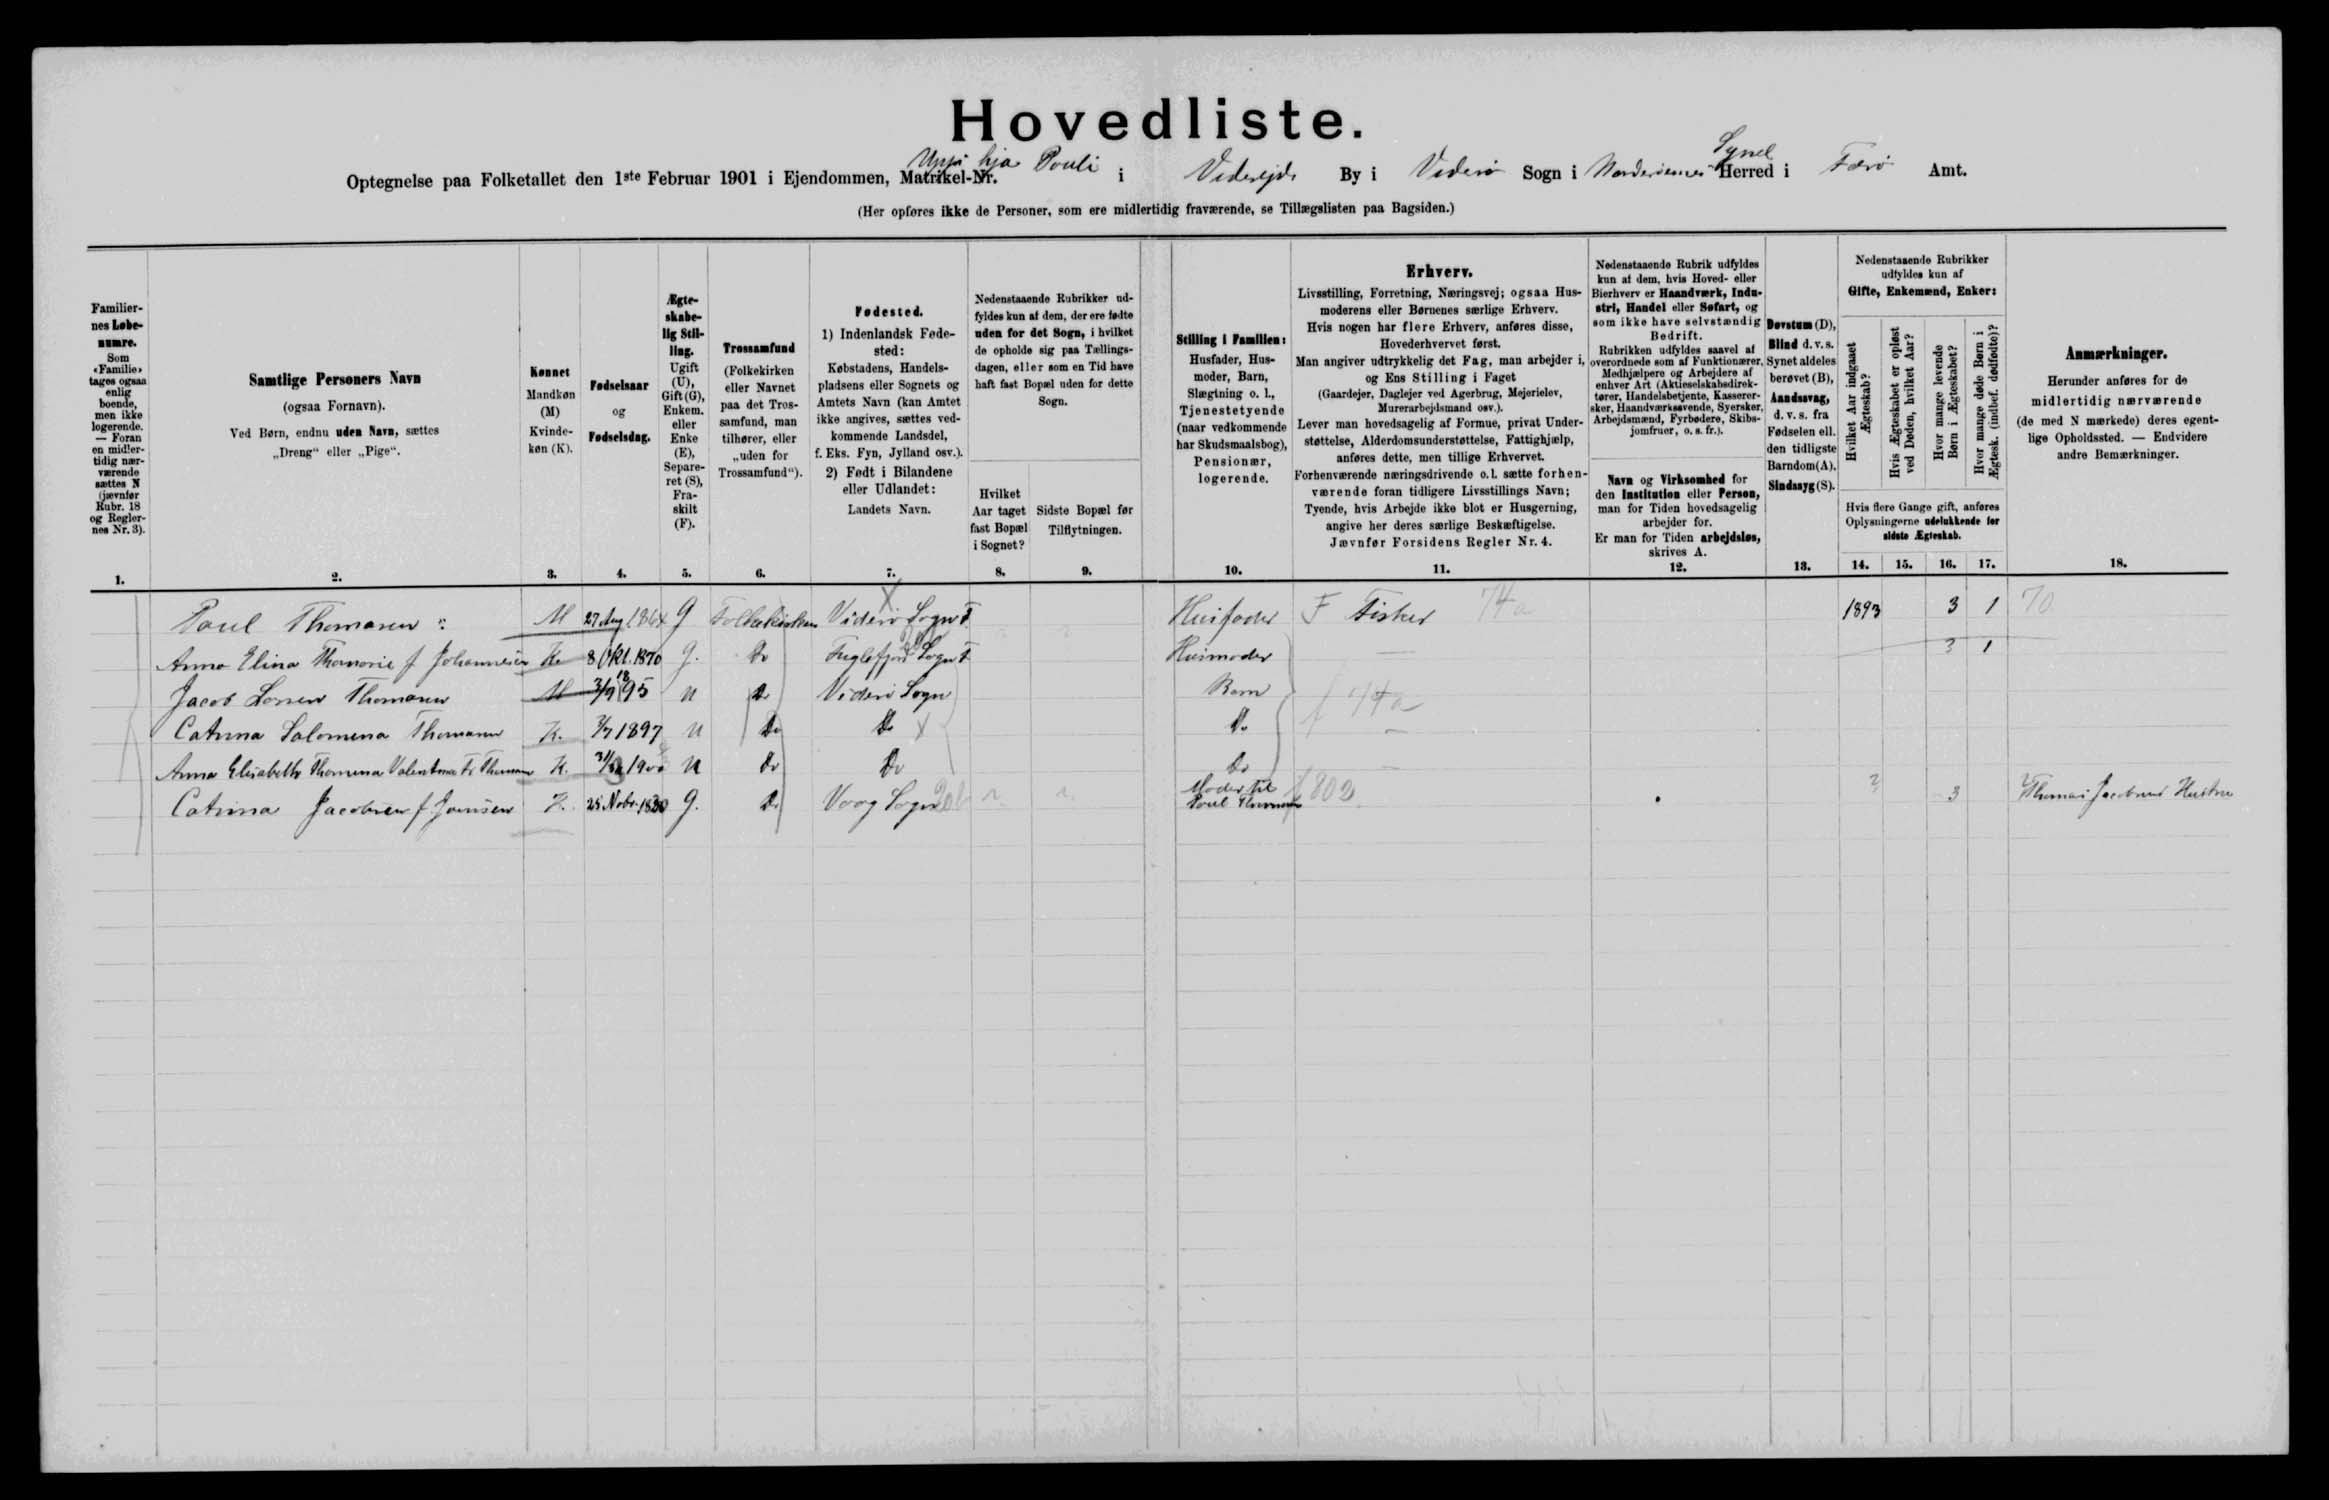 Hovedliste.
Optegnelse paa Folketallet den 1ste Februar 1901 i Ejendommen, Matrikel-Nr. Uppi hja Pouli i Viderejde By i Viderø Sogn i Norderøernes Syssel Herred i Færø Amt.
(Her opføres ikke de Personer, som ere midlertidig fraværende, se Tillægslisten paa Bagsiden.)
Familiernes Løbenumre.
Som «Familie» tages ogsaa enlig boende, men ikke logerende. — Foran en midlertidig nærværende sættes N (jævnfør Rubr. 18 og Reglernes Nr. 3).
1.
Samtlige Personers Navn
(ogsaa Fornavn).
Ved Børn, endnu uden Navn, sættes
„Dreng“ eller „Pige“.
2.
Kønnet
Mandkøn (M)
Kvindekøn (K).
3.
Fødselsaar
og
Fødselsdag.
4.
Ægteskabelig Stilling.
Ugift (U), Gift (G), Enkem. eller Enke (E), Separeret (S), Fraskilt (F).
5.
Trossamfund
(Folkekirken eller Navnet paa det Trossamfund, man tilhører, eller „uden for Trossamfund“).
6.
Fødested.
1) Indenlandsk Fødested:
Købstadens, Handelspladsens eller Sognets og Amtets Navn (kan Amtet ikke angives, sættes vedkommende Landsdel, f. Eks. Fyn, Jylland osv.).
2) Født i Bilandene eller Udlandet:
Landets Navn.
7.
Nedenstaaende Rubrikker udfyldes kun af dem, der ere fødte uden for det Sogn, i hvilket de opholde sig paa Tællingsdagen, eller som en Tid have haft fast Bopæl uden for dette Sogn.
Hvilket Aar taget fast Bopæl i Sognet?
8.
Sidste Bopæl før Tilflytningen.
9.
Stilling i Familien:
Husfader, Husmoder, Barn, Slægtning o. l., Tjenestetyende (naar vedkommende har Skudsmaalsbog), Pensionær, logerende.
10.
Erhverv.
Livsstilling, Forretning, Næringsvej; ogsaa Husmoderens eller Børnenes særlige Erhverv.
Hvis nogen har flere Erhverv, anføres disse, Hovederhvervet først.
Man angiver udtrykkelig det Fag, man arbejder i, og Ens Stilling i Faget
(Gaardejer, Daglejer ved Agerbrug, Mejerielev, Murerarbejdsmand osv.).
Lever man hovedsagelig af Formue, privat Understøttelse, Alderdomsunderstøttelse, Fattighjælp, anføres dette, men tillige Erhvervet.
Forhenværende næringsdrivende o. l. sætte forhenværende foran tidligere Livsstillings Navn;
Tyende, hvis Arbejde ikke blot er Husgerning, angive her deres særlige Beskæftigelse.
Jævnfør Forsidens Regler Nr. 4.
11.
Nedenstaaende Rubrik udfyldes kun af dem, hvis Hoved- eller Bierhverv er Haandværk, Industri, Handel eller Søfart, og som ikke have selvstændig Bedrift.
Rubrikken udfyldes saavel af overordnede som af Funktionærer, Medhjælpere og Arbejdere af enhver Art (Aktieselskabsdirektører, Handelsbetjente, Kasserersker, Haandværkssvende, Syersker, Arbejdsmænd, Fyrbødere, Skibsjomfruer, o. s. fr.).
Navn og Virksomhed for den Institution eller Person, man for Tiden hovedsagelig arbejder for.
Er man for Tiden arbejdsløs, skrives A.
12.
Døvstum (D), Blind d. v. s. Synet aldeles berøvet (B), Aandssvag, d. v. s. fra Fødselen ell. den tidligste Barndom (A). Sindssyg (S).
13.
Nedenstaaende Rubrikker udfyldes kun af
Gifte, Enkemænd, Enker:
Hvilket Aar indgaaet Ægteskab?
Hvis Ægteskabet er opløst ved Døden, hvilket Aar?
Hvor mange levende Børn i Ægteskabet?
Hvor mange døde Børn i Ægtesk. (indbef. dødfødte)?
Hvis flere Gange gift, anføres Oplysningerne udelukkende for sidste Ægteskab.
14. 15. 16. 17.
Anmærkninger.
Herunder anføres for de midlertidig nærværende (de med N mærkede) deres egentlige Opholdssted. — Endvidere andre Bemærkninger.
18.
Poul Thomasen M 27 Aug 1864 G Folkekirken Viderø Sogn F Husfader F Fisker 74a 1893 3 1 70
Anna Elina Thomasie f Johannesen K 8 Okt. 1870 G. Do Fuglefjord Sogn F Husmoder — 3 1
Jacob Thomasen M 3/9 1895 U Do Viderø Sogn Barn f 74a
Catrina Salomina Thomasen K. 1897 U Do Do Do —
Anna Elisabeth Thomina Valentina Thomasen K. 1900 U Do Do Do —
Catrina Jacobsen f. Joensen K. 25 Nobr. 1830 G. Do Vaag Sogn Moder til Poul Thomasen f 802 ? 3 Thomas Jacobsens Hustru